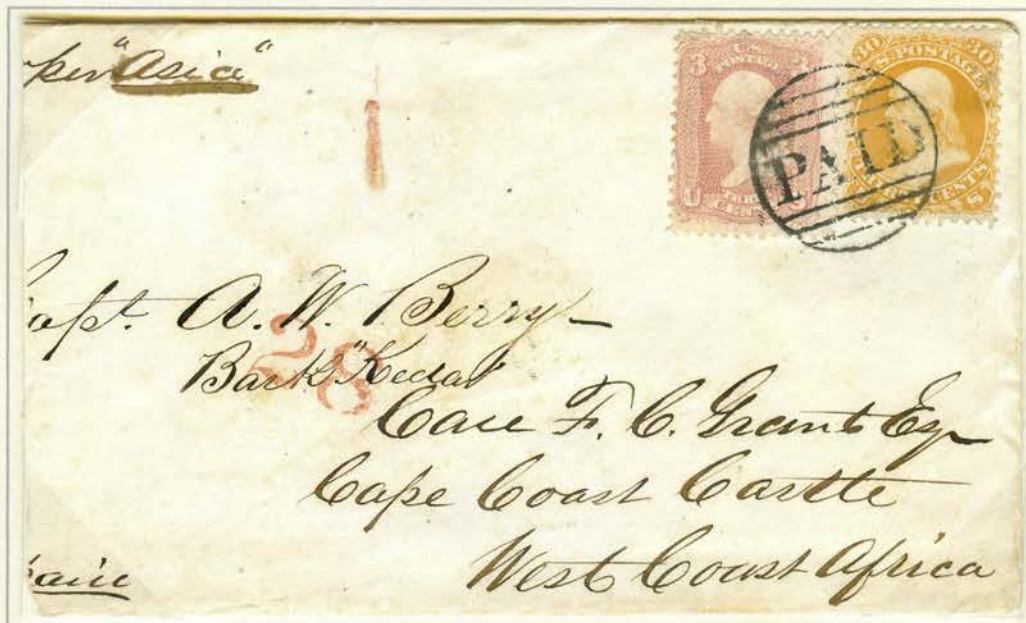 per "Asia"
3 3
U.S. POSTAGE
THREE CENTS
U S
30 30
U.S. POSTAGE
CENTS
S
PAID
1
Capt. A. W. Berry
28
Bark "Kedar"
Care F. C. Grant Esq
Cape Coast Castle
West Coast Africa
paid